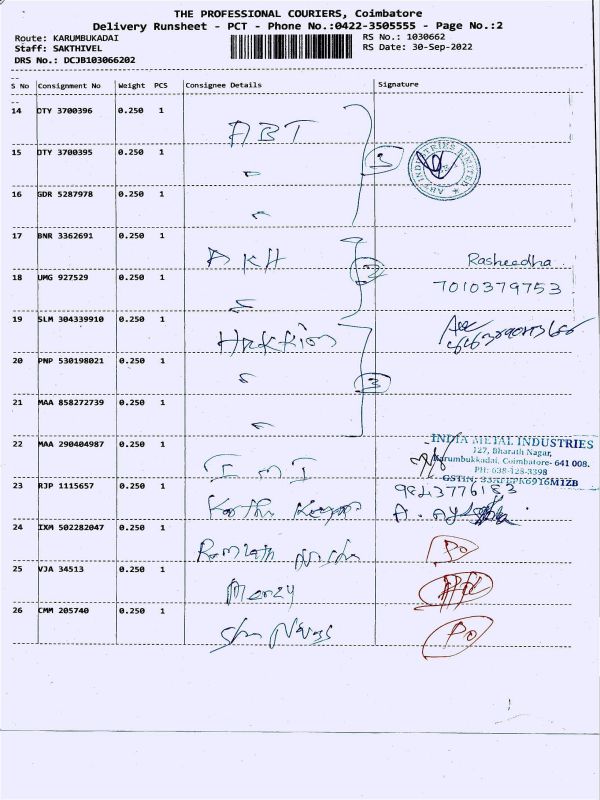 THE PROFESSIONAL COURIERS, Coimbatore
Delivery Runsheet - PCT - Phone No.:0422-3505555 - Page No.:2
Route: KARUMBUKADAI RS No.: 1030662
Staff: SAKTHIVEL RS Date: 30-Sep-2022
DRS No.: DCJB103066202
S No Consignment No Weight PCS Consignee Details Signature
14 DTY 3700396 0.250 1 ABT
15 DTY 3700395 0.250 1 3 ABT INDUSTRIES LIMITED
16 GDR 5287978 0.250 1
17 BNR 3362691 0.250 1 AKH Rasheedha
18 UMG 927529 0.250 1 2 7010379753
19 SLM 304339910 0.250 1
20 PNP 530198021 0.250 1 3
21 MAA 858272739 0.250 1
INDIA METAL INDUSTRIES
127, Bharath Nagar,
Karumbukkadai, Coimbatore- 641 008.
PH: 638-128-3398
GSTIN: 33AFEPK6916M1ZB
22 MAA 290404987 0.250 1 I M I
23 RJP 1115657 0.250 1 9843776183
24 IXM 502282047 0.250 1 Po
25 VJA 34513 0.250 1 Merzy
26 CMM 205740 0.250 1 Po